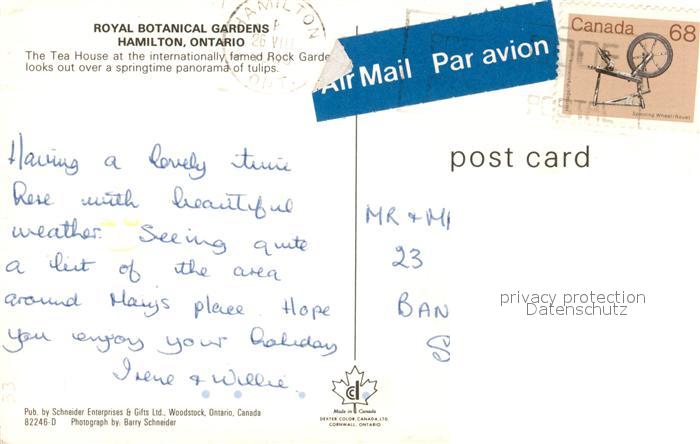 ROYAL BOTANICAL GARDENS
HAMILTON, ONTARIO
The Tea House at the internationally famed Rock Garde
looks out over a springtime panorama of tulips.
HAMILTON
26 VIII
ONT
Air Mail Par avion
Canada 68
Spinning Wheel/Rouet
POSTAL
post card
Having a lovely time
here with beautiful
weather. Seeing quite
a lot of the area
around Mary's place. Hope
you enjoy your holiday
Irene & Willie.
MR & M
23
BAN
S
privacy protection
Datenschutz
Pub. by Schneider Enterprises & Gifts Ltd., Woodstock, Ontario, Canada
82246-D Photograph by: Barry Schneider
Made in Canada
DEXTER COLOR CANADA, LTD.
CORNWALL, ONTARIO